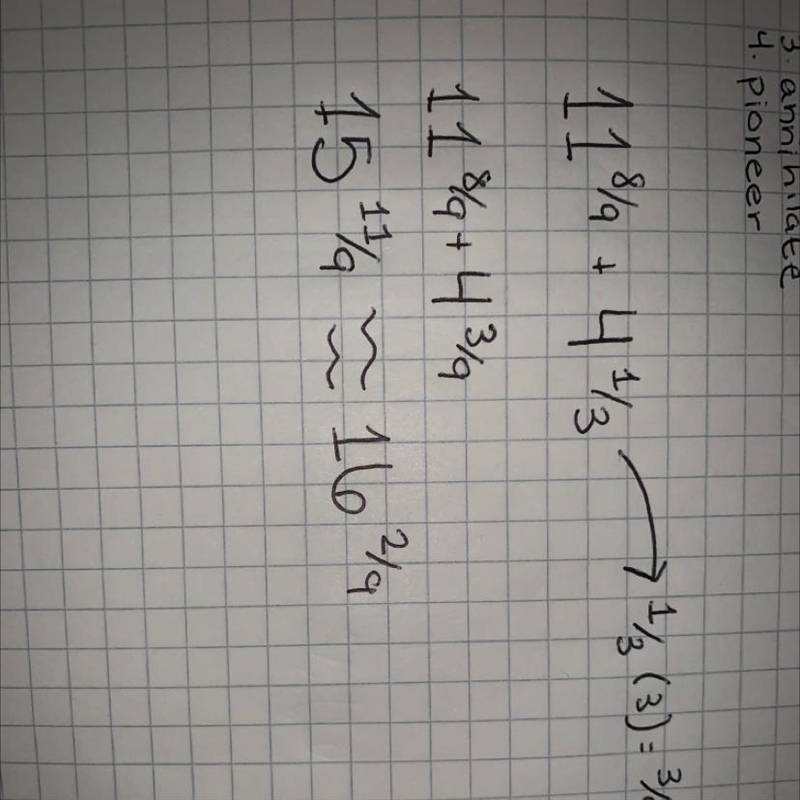 3. annihilate
4. pioneer
11 8/9 + 4 1/3 → 1/3 (3) = 3/
11 8/9 + 4 3/9
15 11/9 ≈ 16 2/9